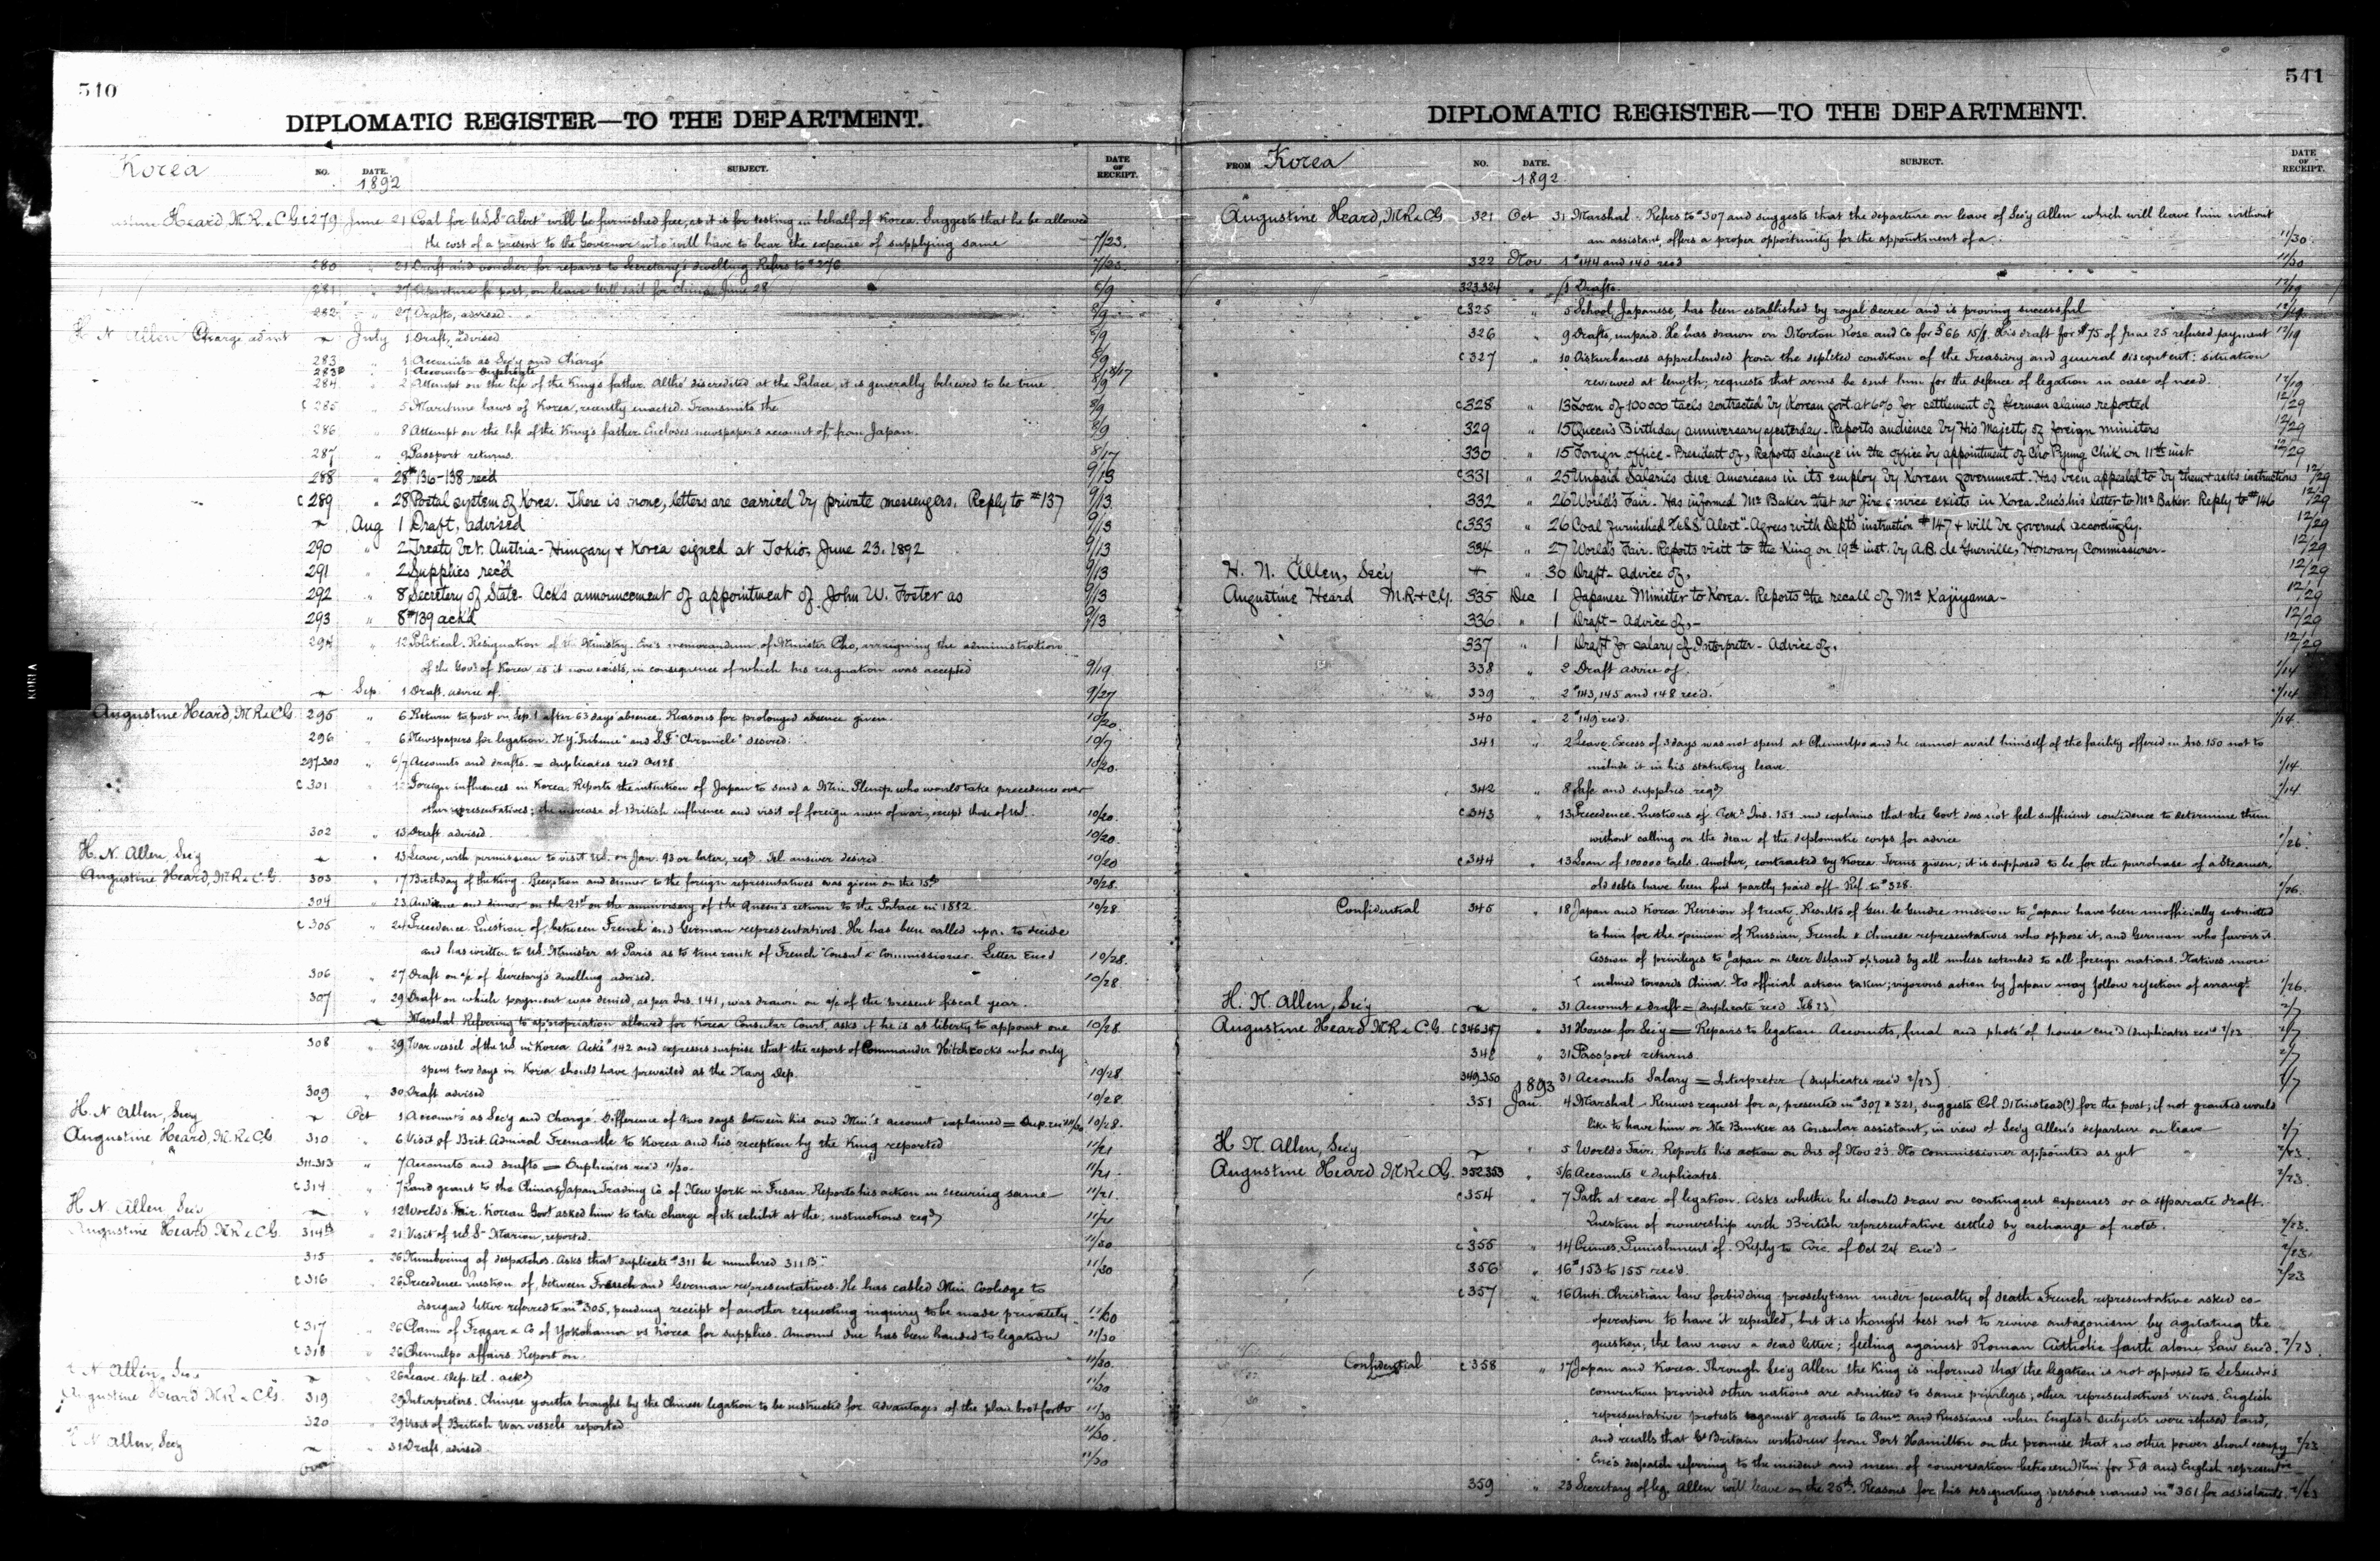 540
DIPLOMATIC REGISTER—TO THE DEPARTMENT.
Korea
NO. DATE. SUBJECT. DATE OF RECEIPT.
1892
Heard, M.R. & C.G. c 279 June 21 Coal for U.S.S "Alert" will be furnished free, as it is for testing in behalf of Korea. Suggests that he be allowed
the cost of a present to the Governor who will have to bear the expense of supplying same 7/23.
280 " 21 Draft and voucher for repairs to Secretary's dwelling. Refers to #276 7/23.
281 " 27 Departure fr post, on leave. Will sail for China June 28 8/9
282 " 27 Drafts, advised. 8/9
H N Allen Charge ad int July 1 Draft, advised 8/9
283 " 1 Accounts as Sec'y and Chargé 8/9
283B " 1 Accounts - Duplicate 8/17
284 " 2 Attempt on the life of the King's father. Altho' discredited at the Palace, it is generally believed to be true. 8/9
c 285 " 5 Maritime laws of Korea, recently enacted. Transmits the 8/9
286 " 8 Attempt on the life of the King's father. Encloses newspaper's account of, from Japan. 8/9
287 " 9 Passport returns. 8/17
288 " 28 #136-138 rec'd 9/13
c 289 " 28 Postal system of Korea. There is none, letters are carried by private messengers. Reply to #137 9/13
Aug 1 Draft, advised 9/13
290 " 2 Treaty bet. Austria-Hungary & Korea signed at Tokio, June 23. 1892 9/13
291 " 2 Supplies rec'd 9/13
292 " 8 Secretary of State. Ack's announcement of appointment of John W. Foster as 9/13
293 " 8 #139 ack'd 9/13
294 " 12 Political. Resignation of the Ministry. Enc's memorandum of Minister Cho, arraigning the administration
of the Govt of Korea as it now exists, in consequence of which his resignation was accepted 9/19
Sep. 1 Draft. advice of. 9/27
Augustine Heard, M.R. & C.G. 295 " 6 Return to post on Sep. 1 after 63 days' absence. Reasons for prolonged absence given. 10/20.
296 " 6 Newspapers for legation. N.Y. "Tribune" and S.F. "Chronicle" desired. 10/7
297.300 " 6/7 Accounts and drafts. = duplicates rec'd Oct 28 10/20.
c 301 " Foreign influences in Korea. Reports the intention of Japan to send a Min. Plenip. who would take precedence over
other representatives; the increase of British influence and visit of foreign men of war, except those of U.S. 10/20.
302 " 13 Draft advised. 10/20.
H. N. Allen, Sec'y " 13 Leave, with permission to visit U.S. on Jan. 93 or later, reqd. Tel. answer desired 10/20
Augustine Heard, M.R. & C.G. 303 " 17 Birthday of the King. Reception and dinner to the foreign representatives was given on the 15th 10/28.
304 " 23 Audience and dinner on the 21st on the anniversary of the Queen's return to the Palace in 1882. 10/28
c 305 " 24 Precedence. Question of, between French and German representatives. He has been called upon to decide
and has written to U.S. Minister at Paris as to true rank of French "Consul & Commissioner." Letter Enc'd 10/28.
306 " 27 Draft on a/c of Secretary's dwelling advised. 10/28.
307 " 29 Draft on which payment was denied, as per Ins. 141, was drawn on a/c of the present fiscal year.
Marshal. Referring to appropriation allowed for Korea Consular Court, asks if he is at liberty to appoint one 10/28
308 " 29 War vessel of the U.S. in Korea. Acks #142 and expresses surprise that the report of Commander Hitchcock's who only
spent two days in Korea should have prevailed at the Navy Dep. 10/28.
309 " 30 Draft advised 10/28.
H. N Allen, Sec'y Oct 1 Accounts as Sec'y and Chargé. Difference of two days between his and Min's account explained = 10/28.
Augustine Heard, M.R. & C.G. 310 " 6 Visit of Brit. Admiral Fremantle to Korea and his reception by the King reported 11/21
311-313 " 7 Accounts and drafts = Duplicates rec'd 11/30. 11/21.
c 314 " 7 Land grant to the China & Japan Trading Co. of New York in Fusan. Reports his action in securing same 11/21.
H N. Allen Sec'y " 12 World's Fair. Korean Govt asked him to take charge of its exhibit at the; instructions reqd 11/21
Augustine Heard M.R. & C.G. 314B " 21 Visit of U.S.S. Marion, reported. 11/30
315 " 26 Numbering of despatches. Asks that duplicate #311 be numbered 311B. 11/30
c 316 " 26 Precedence. Question of, between French and German representatives. He has cabled Min. Coolidge to
disregard letter referred to in #305, pending receipt of another requesting inquiry to be made privately. 11/30
c 317 " 26 Claim of Frazar & Co of Yokohama vs Korea for supplies. Amount due has been handed to legation 11/30
c 318 " 26 Chemulpo affairs. Report on. 11/30.
N Allen, Sec. 26 Leave. Dep. tel. ackd 11/30
Augustine Heard M.R. & C.G. 319 29 Interpreters. Chinese youths brought by the Chinese legation to be instructed for. Advantages of the plan set forth 11/30
320 " 29 Visit of British War vessels reported 11/30.
H N Allen, Sec'y " 31 Draft, advised 11/30
Over
541
DIPLOMATIC REGISTER—TO THE DEPARTMENT.
FROM Korea NO. DATE. SUBJECT. DATE OF RECEIPT.
1892
Augustine Heard, M.R. & C.G. 321 Oct 31 Marshal. Refers to #307 and suggests that the departure on leave of Sec'y Allen which will leave him without
an assistant, offers a proper opportunity for the appointment of a. 11/30.
322 Nov 1 #144 and 140 rec'd 11/30
323.324 " 1 Drafts. 12/19
c 325 " 5 School, Japanese, has been established by royal decree and is proving successful 12/19.
326 " 9 Drafts, unpaid. He has drawn on Morton Rose and Co for £66 15/9. His draft for $75 of June 25 refused payment 12/19
c 327 " 10 Disturbances apprehended from the depleted condition of the Treasury and general discontent: situation
reviewed at length; requests that arms be sent him for the defence of legation in case of need. 12/19
c 328 " 13 Loan of 100000 taels contracted by Korean govt at 6% for settlement of German claims reported 12/29
329 " 15 Queen's Birthday anniversary yesterday. Reports audience by His Majesty of foreign ministers 12/29
330 " 15 Foreign office - President of, Reports change in the office by appointment of Cho Pyung Chik on 11th inst 12/29
c 331 " 25 Unpaid Salaries due Americans in its employ by Korean government. Has been appealed to by them & asks instructions 12/29
332 " 26 World's Fair. Has informed Mr Baker that no fire service exists in Korea. Enc's his letter to Mr Baker. Reply to #146 12/29
c 333 " 26 Coal furnished U.S.S "Alert". Agrees with Dept's instruction #147 & will be governed accordingly. 12/29
334 " 27 World's Fair. Reports visit to the King on 19th inst. by A.B. de Guerville, Honorary Commissioner. 12/29
H. N. Allen, Sec'y " 30 Draft - advice of, 12/29
Augustine Heard M.R. & C.G. 335 Dec 1 Japanese Minister to Korea. Reports the recall of Mr Kajiyama 12/29
336 " 1 Draft - Advice of, 12/29
337 " 1 Draft for salary of Interpreter - Advice of, 12/29
338 2 Draft advice of. 1/14
339 2 #143, 145 and 148 rec'd. 1/14
340 " 2 #149 rec'd. 1/14.
341 " 2 Leave. Excess of 3 days was not spent at Chemulpo and he cannot avail himself of the facility offered in Ins. 150 not to
include it in his statutory leave. 1/14
342 " 8 Safe and supplies reqd 1/14
c 343 " 13 Precedence. Questions of. Acks Ins. 151 and explains that the Govt does not feel sufficient confidence to determine them
without calling on the dean of the diplomatic corps for advice 1/26.
c 344 " 13 Loan of 100000 taels. Another, contracted by Korea. Terms given; it is supposed to be for the purchase of a Steamer,
old debts have been but partly paid off. Ref. to #328. 1/26.
Confidential 345 " 18 Japan and Korea. Revision of treaty. Results of Gen. le Gendre mission to Japan have been unofficially submitted
to him for the opinion of Russian, French & Chinese representatives who oppose it, and German who favors it.
Cession of privileges to Japan on Deer Island opposed by all unless extended to all foreign nations. Natives more
inclined towards China. No official action taken; vigorous action by Japan may follow rejection of arrangt 1/26.
H. N. Allen, Sec'y " 31 Account & draft = duplicate rec'd Feb 23) 2/7
Augustine Heard M.R. & C.G. c 346.347 " 31 House for Sec'y = Repairs to legation. Accounts, final and photo' of house enc'd (duplicates rec'd 2/23 2/7
348 " 31 Passport returns. 2/7
349.350 " 31 Accounts Salary = Interpreter (duplicates rec'd 2/23) 2/7
1893
351 Jan 4 Marshal. Renews request for a, presented in #307 & 321, suggests Col. Ninstead(?) for the post; if not granted would
like to have him or Mr Bunker as Consular assistant, in view of Sec'y Allen's departure on leave 2/7
H N. Allen, Sec'y " 5 World's Fair. Reports his action on Ins of Nov 23. No commissioner appointed as yet 2/23.
Augustine Heard M.R. & C.G. 352.353 " 5/6 Accounts & duplicates. 2/23.
c 354 " 7 Path at rear of legation. Asks whether he should draw on contingent expenses or a separate draft.
Question of ownership with British representative settled by exchange of notes. 2/23.
c 355 " 14 Crimes. Punishment of. Reply to Circ. of Oct 24 Enc'd 2/23.
356 " 16 #153 to 155 rec'd. 2/23
c 357 " 16 Anti-Christian law forbidding proselytism under penalty of death. French representative asked co-
operation to have it repealed, but it is thought best not to revive antagonism by agitating the
question; the law now a dead letter; feeling against Roman Catholic faith alone. Law Enc'd. 2/23
Confidential c 358 " 17 Japan and Korea. Through Sec'y Allen the King is informed that the legation is not opposed to LeGendre's
convention provided other nations are admitted to same privileges; other representatives' views. English
representative protests against grants to Amn and Russians when English subjects were refused land,
and recalls that Gt Britain withdrew from Port Hamilton on the promise that no other power should occupy 2/23
Enc's despatch referring to the incident and mem. of conversation between Min for F A and English represent've
359 " 23 Secretary of leg. Allen will leave on the 25th. Reasons for his designating persons named in #351 for assistants. 2/23